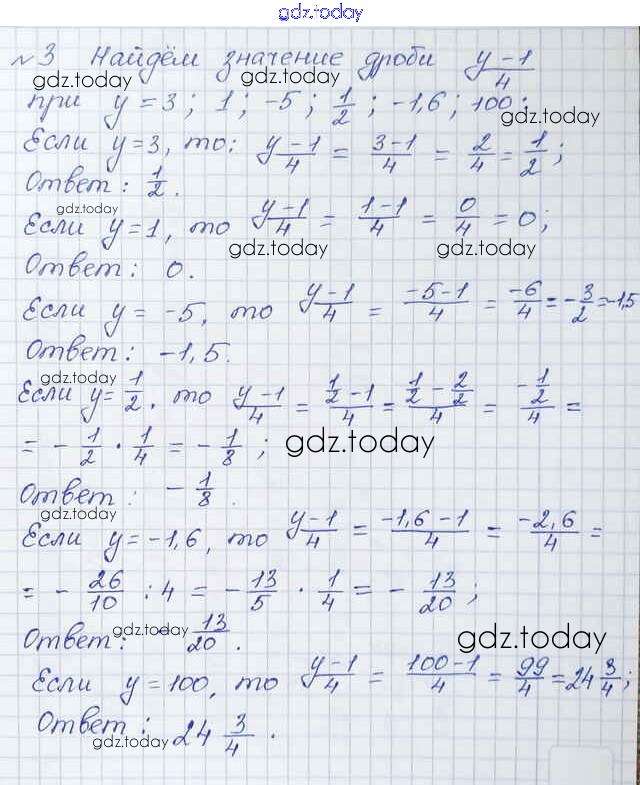 gdz.today
№3 Найдём значение дроби (y-1)/4
gdz.today gdz.today
при y = 3; 1; -5; 1/2; -1,6; 100:
gdz.today
Если y=3, то: (y-1)/4 = (3-1)/4 = 2/4 = 1/2;
Ответ: 1/2.
gdz.today
Если y=1, то (y-1)/4 = (1-1)/4 = 0/4 = 0;
gdz.today gdz.today
Ответ: 0.
Если y= -5, то (y-1)/4 = (-5-1)/4 = -6/4 = -3/2 = -1,5
Ответ: -1,5.
gdz.today
Если y= 1/2, то (y-1)/4 = (1/2 - 1)/4 = (1/2 - 2/2)/4 = (-1/2)/4 =
= - 1/2 · 1/4 = - 1/8 ;
gdz.today
Ответ: - 1/8.
gdz.today
Если y= -1,6, то (y-1)/4 = (-1,6-1)/4 = -2,6/4 =
= - 26/10 : 4 = - 13/5 · 1/4 = - 13/20 ;
Ответ: - 13/20.
gdz.today gdz.today
Если y=100, то (y-1)/4 = (100-1)/4 = 99/4 = 24 3/4;
Ответ: 24 3/4.
gdz.today